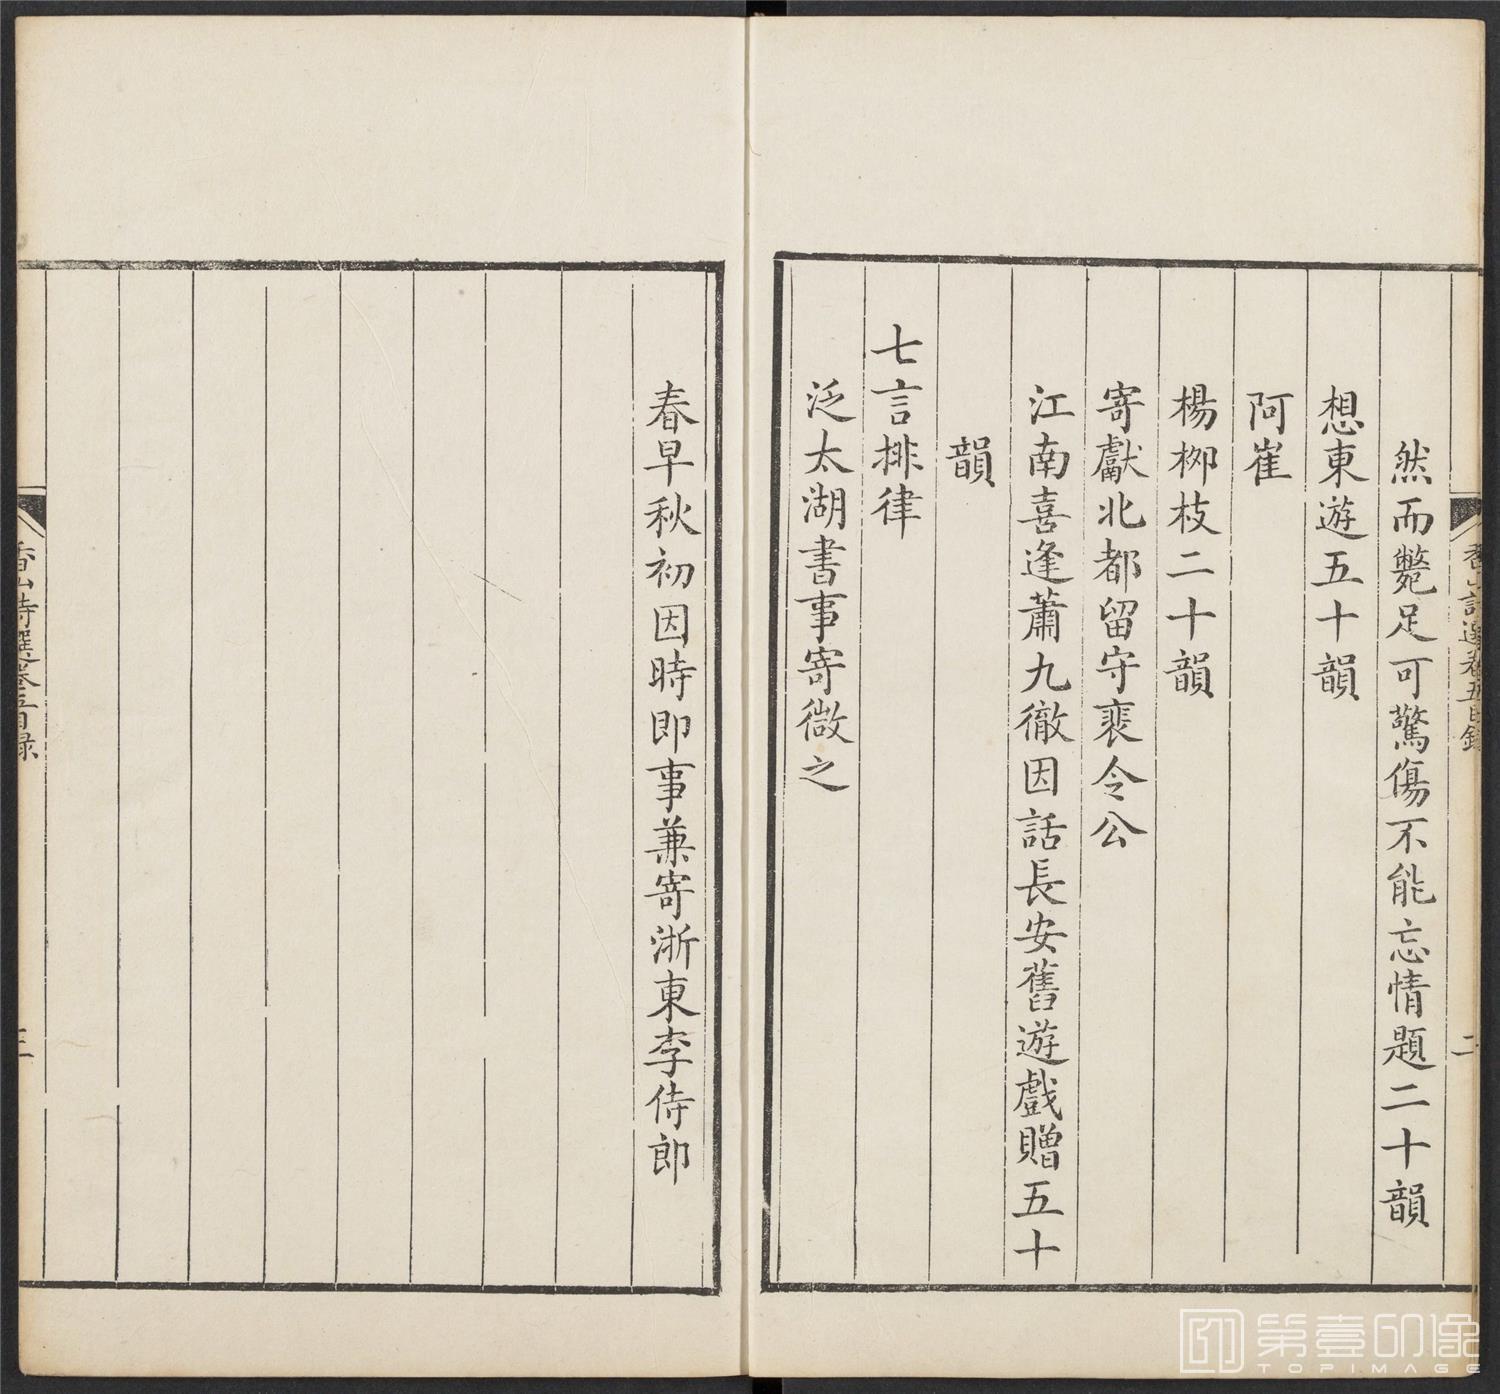 然而斃足可驚傷不能忘情題二十韻
想東遊五十韻
阿崔
楊柳枝二十韻
寄獻北都留守裴令公
江南喜逢蕭九徹因話長安舊遊戲贈五十
韻
七言排律
泛太湖書事寄微之
春早秋初因時即事兼寄浙東李侍郎
香山詩選卷五目錄
二
香山詩選卷五目錄
三
第壹印像
TOPIMAGE